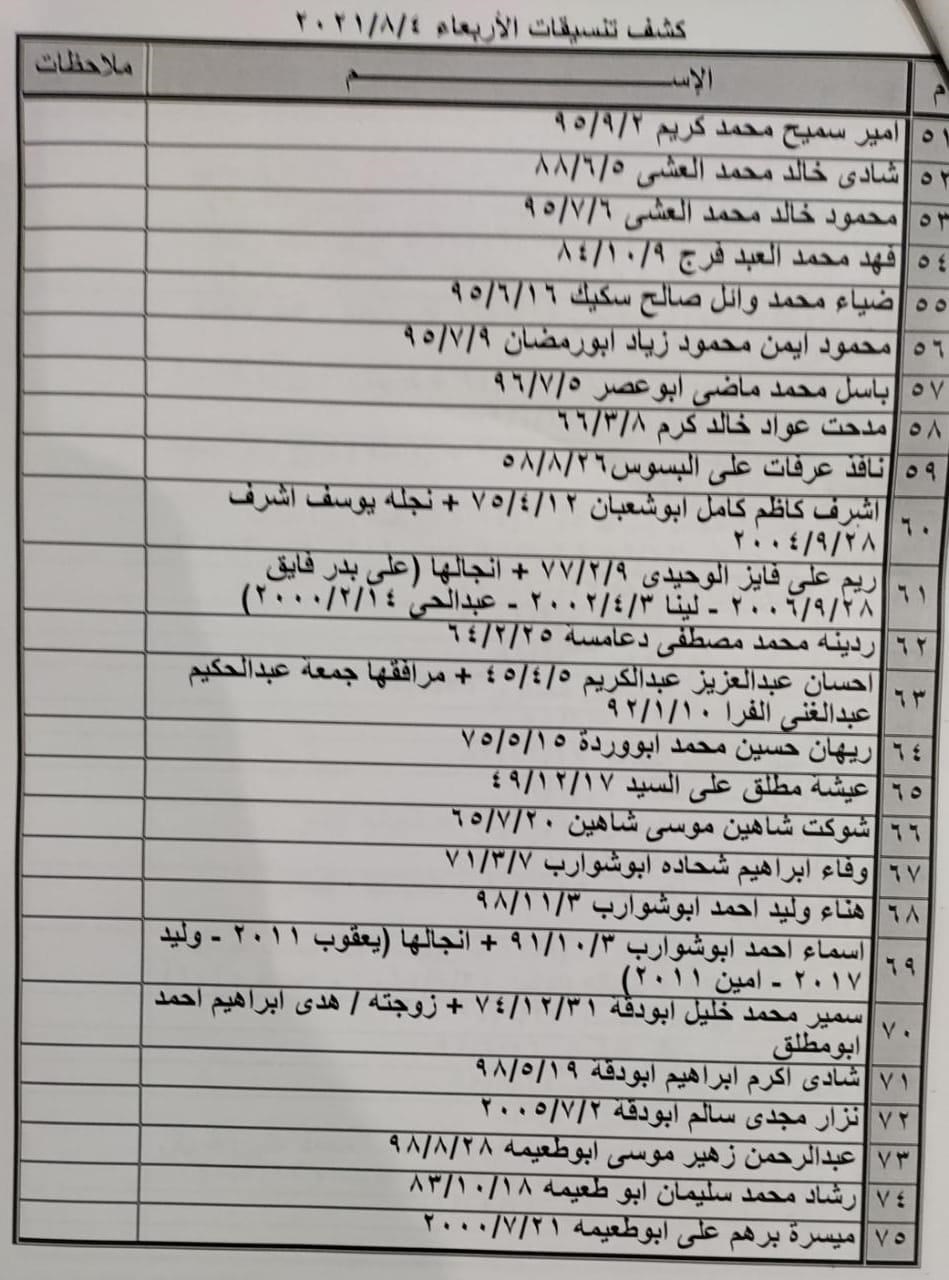 كشف تنسيقات الأربعاء ٢٠٢١/٨/٤
م الإســـــــــــــــــــــم ملاحظات
٥١ امير سميح محمد كريم ٩٥/٩/٢
٥٢ شادى خالد محمد العشى ٨٨/٦/٥
٥٣ محمود خالد محمد العشى ٩٥/٧/٦
٥٤ فهد محمد العبد فرج ٨٤/١٠/٩
٥٥ ضياء محمد وائل صالح سكيك ٩٥/٦/١٦
٥٦ محمود ايمن محمود زياد ابورمضان ٩٥/٧/٩
٥٧ باسل محمد ماضى ابوعصر ٩٦/٧/٥
٥٨ مدحت عواد خالد كرم ٦٦/٣/٨
٥٩ نافذ عرفات على البسوس٥٨/٨/٢٦
٦٠ اشرف كاظم كامل ابوشعبان ٧٥/٤/١٢ + نجله يوسف اشرف
٢٠٠٤/٩/٢٨
٦١ ريم على فايز الوحيدى ٧٧/٢/٩ + انجالها (على بدر فايق
٢٠٠٦/٩/٢٨ - لينا ٢٠٠٢/٤/٣ - عبدالحى ٢٠٠٠/٢/١٤)
٦٢ ردينه محمد مصطفى دعامسة ٦٤/٢/٢٥
٦٣ احسان عبدالعزيز عبدالكريم ٤٥/٤/٥ + مرافقها جمعة عبدالحكيم
عبدالغنى الفرا ٩٢/١/١٠
٦٤ ريهان حسين محمد ابووردة ٧٥/٥/١٥
٦٥ عيشة مطلق على السيد ٤٩/١٢/١٧
٦٦ شوكت شاهين موسى شاهين ٦٥/٧/٢٠
٦٧ وفاء ابراهيم شحاده ابوشوارب ٧١/٣/٧
٦٨ هناء وليد احمد ابوشوارب ٩٨/١١/٣
٦٩ اسماء احمد ابوشوارب ٩١/١٠/٣ + انجالها (يعقوب ٢٠١١ - وليد
٢٠١٧ - امين ٢٠١١)
٧٠ سمير محمد خليل ابودقة ٧٤/١٢/٣١ + زوجته / هدى ابراهيم احمد
ابومطلق
٧١ شادى اكرم ابراهيم ابودقة ٩٨/٥/١٩
٧٢ نزار مجدى سالم ابودقة ٢٠٠٥/٧/٢
٧٣ عبدالرحمن زهير موسى ابوطعيمه ٩٨/٨/٢٨
٧٤ رشاد محمد سليمان ابو طعيمه ٨٣/١٠/١٨
٧٥ ميسرة برهم على ابوطعيمه ٢٠٠٠/٧/٢١